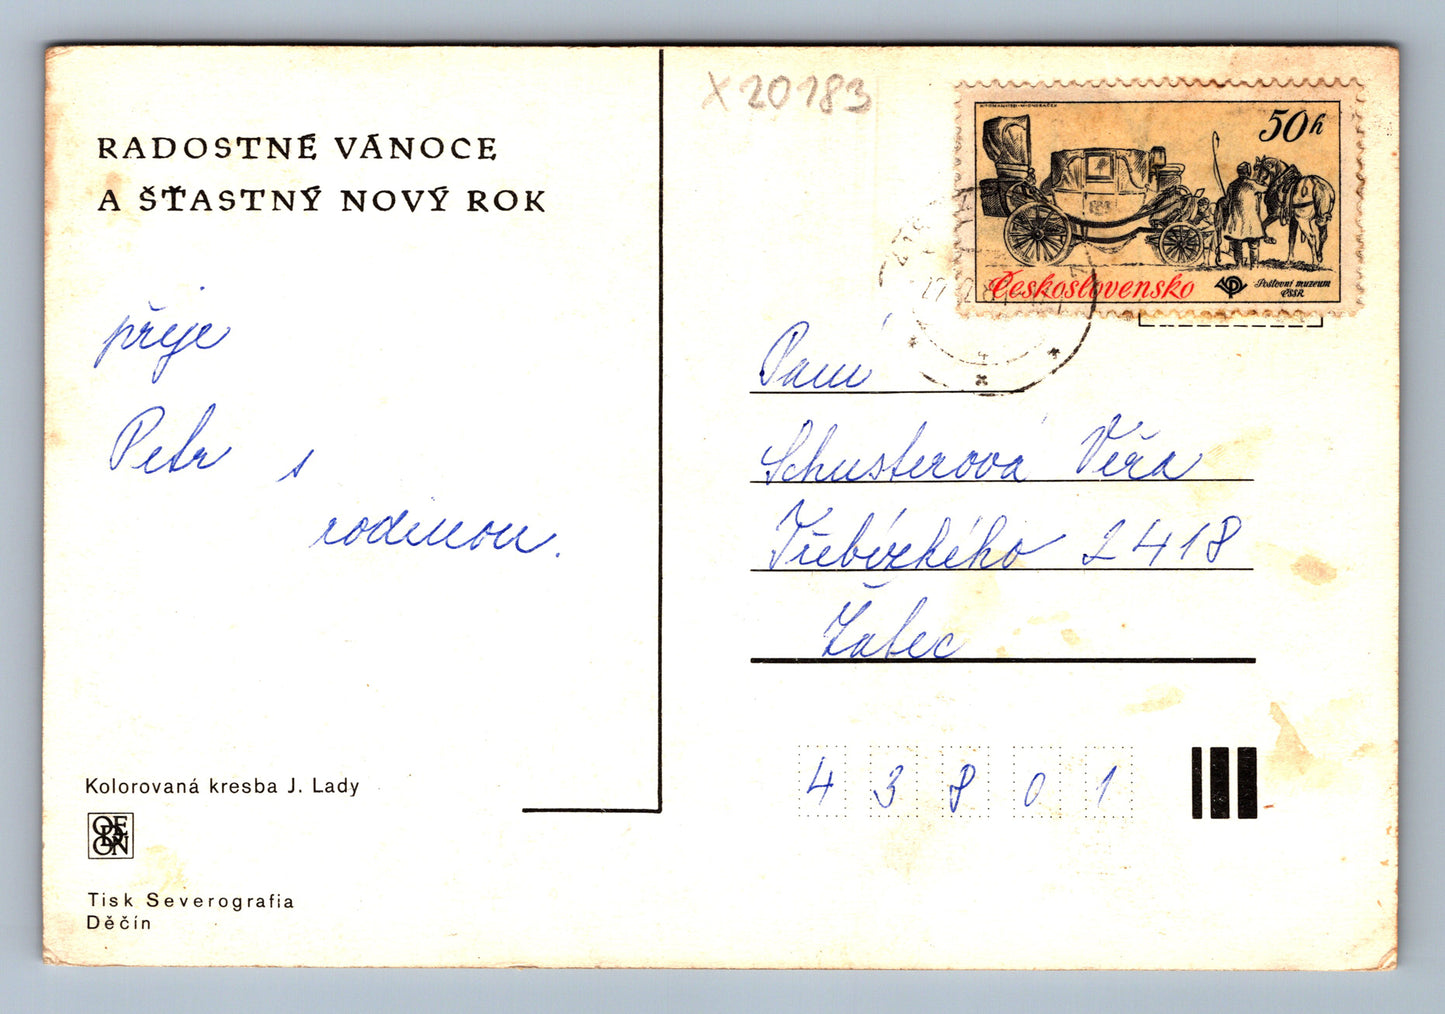 X20183
RADOSTNÉ VÁNOCE
A ŠŤASTNÝ NOVÝ ROK
přeje
Petr s
rodinou.
Kolorovaná kresba J. Lady
ODEON
Tisk Severografia
Děčín
50h
Československo
Poštovní muzeum
ČSSR
Paní
Schusterová Věra
Třebízkého 2418
Žatec
43801